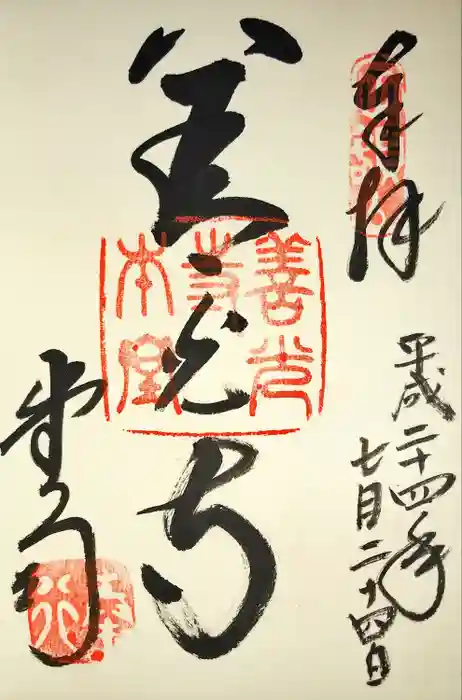 奉拝
平成二十四年
七月二十四日
善光寺
善光
寺
本堂
堂司